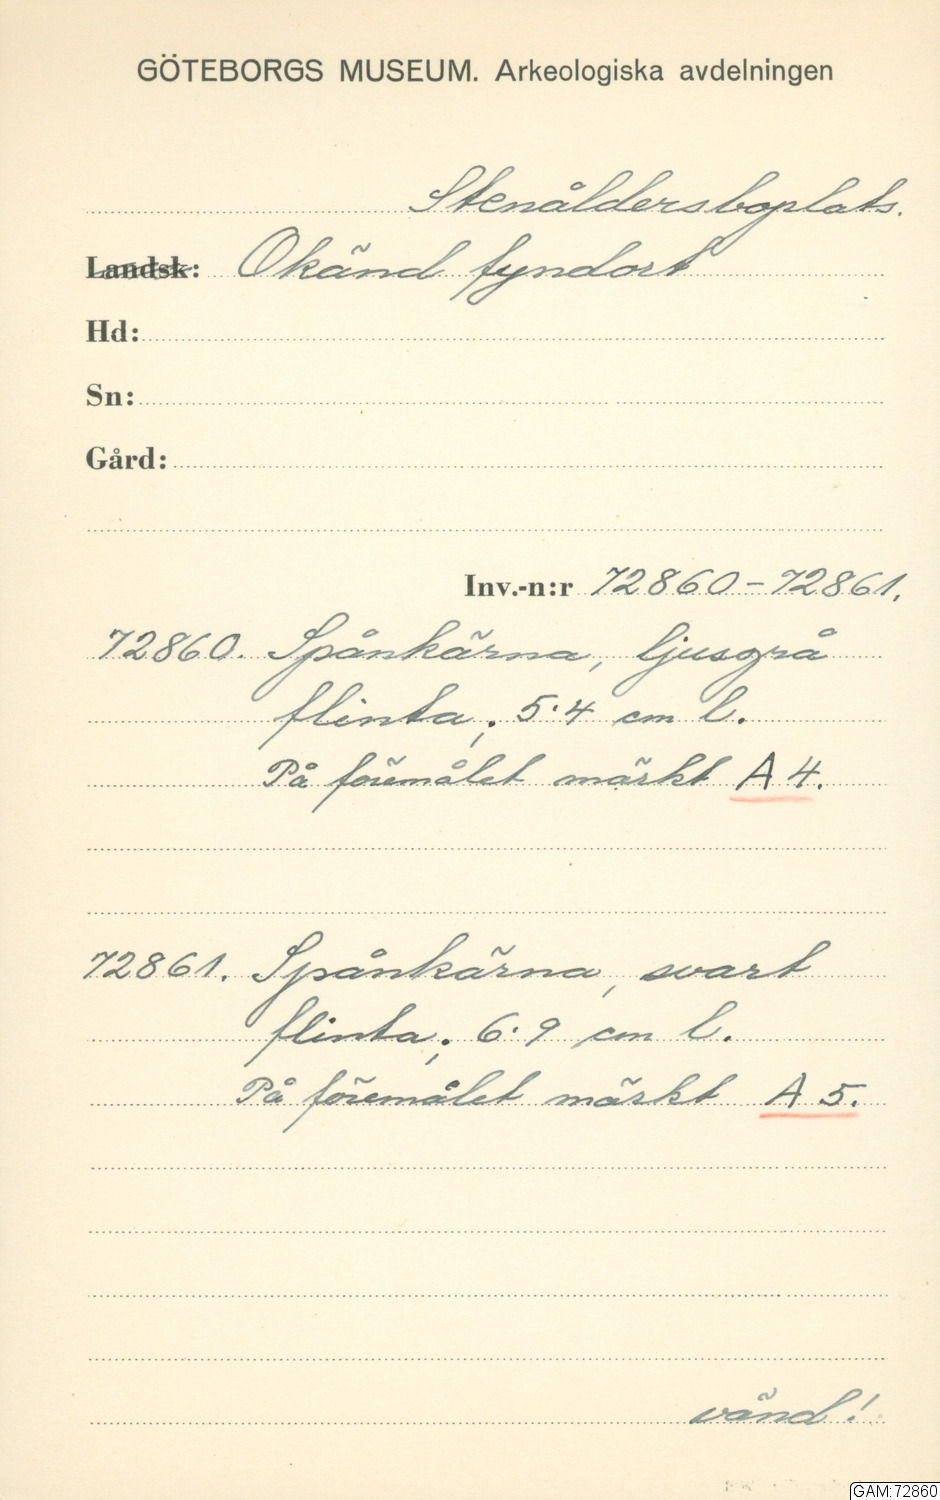 GÖTEBORGS MUSEUM. Arkeologiska avdelningen
Stenåldersboplats.
Landsk: Okänd fyndort
Hd:
Sn:
Gård:
Inv.-n:r 72860-72861.
72860. Spånkärna, ljusgrå
flinta; 5.4 cm l.
På föremålet märkt A 4.
72861. Spånkärna, svart
flinta; 6.9 cm l.
På föremålet märkt A 5.
vänd!
GAM:72860